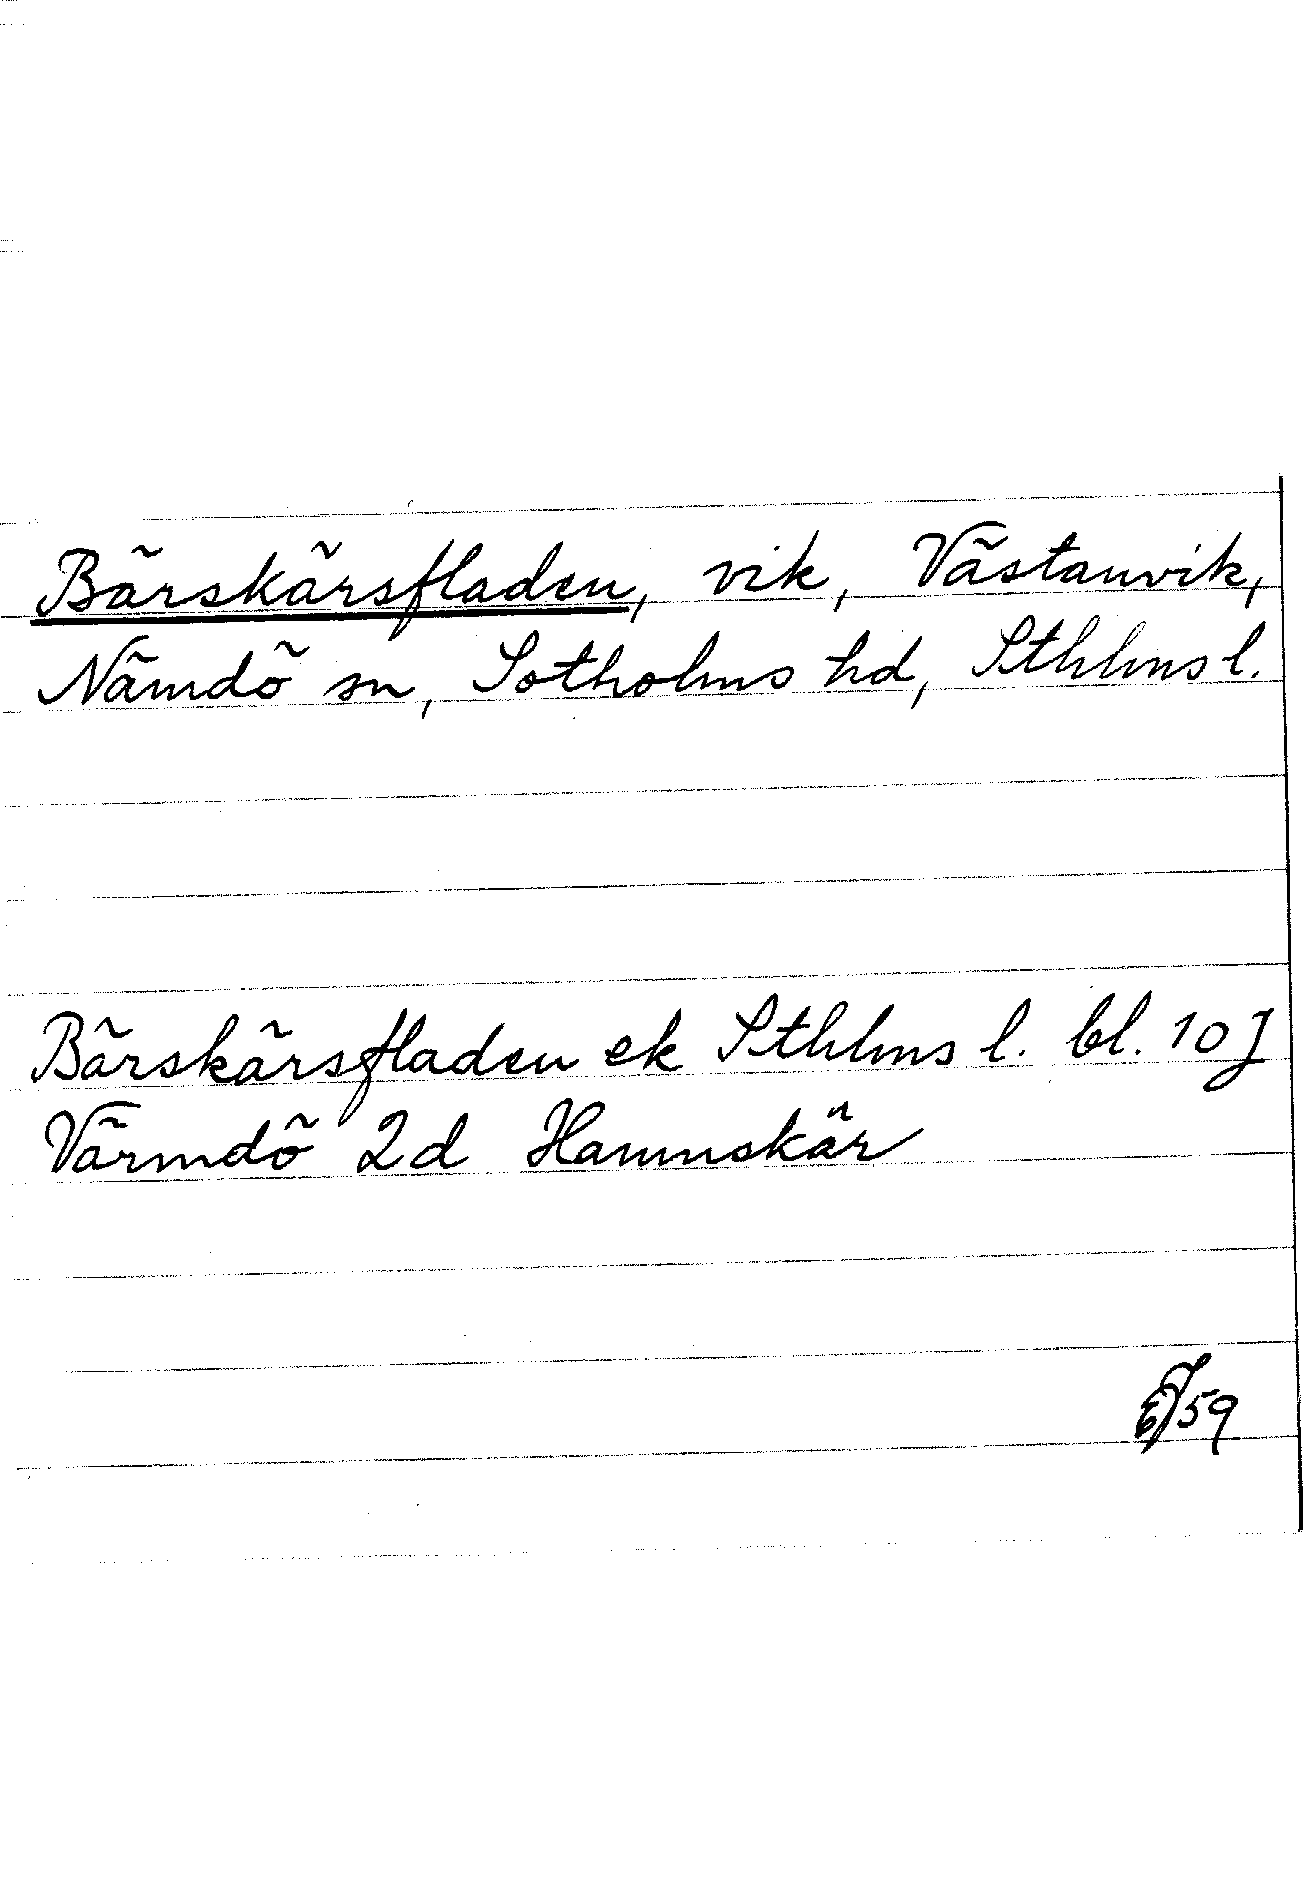 Bärskärsfladen, vik, Västanvik,
Nämdö sn, Sotholms hd, Sthlms l.
Bärskärsfladen ek Sthlms l. bl. 10 J
Värmdö 2d Hamnskär
59